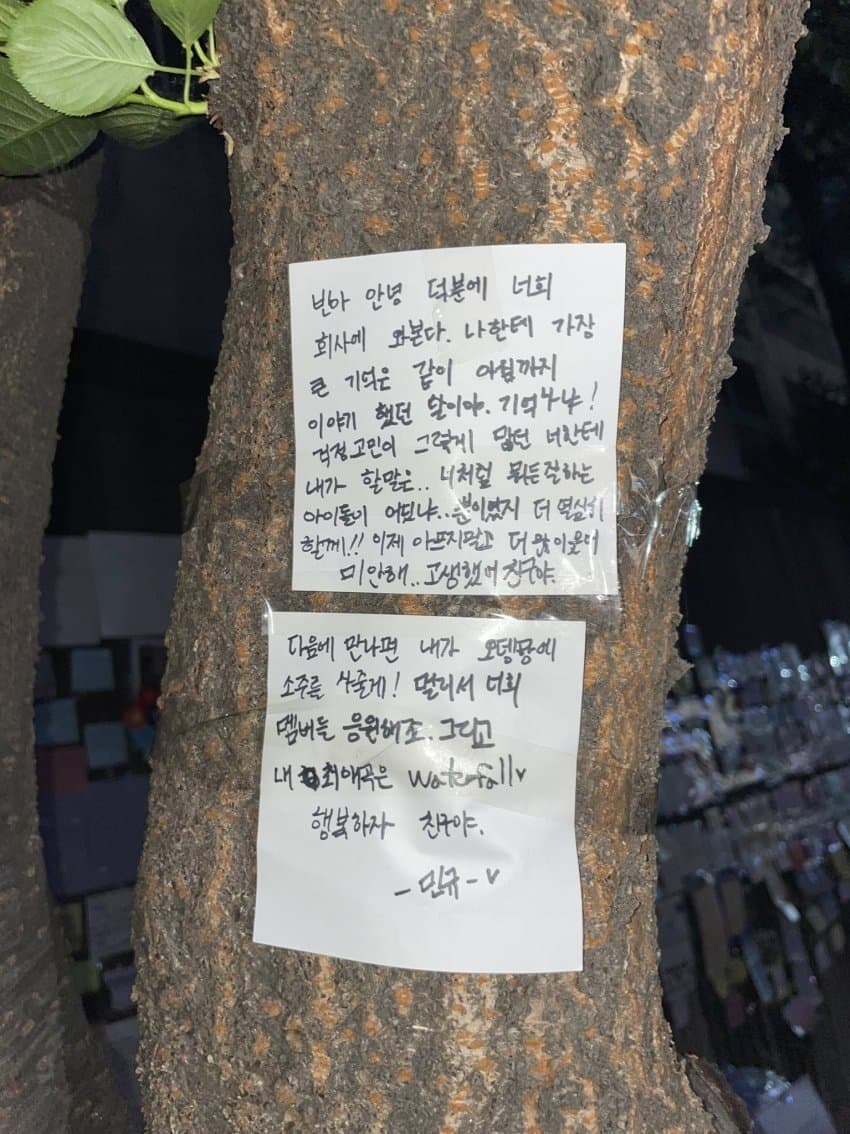 빈아 안녕 덕분에 너희
회사에 와본다. 나한테 가장
큰 기억은 같이 아침까지
이야기 했던 날이야. 기억나냐!
걱정고민이 그렇게 많던 너한테
내가 할말은.. 너처럼 뭐든잘하는
아이돌이 어딨냐.. 뿐이었지 더 열심히
할게!! 이제 아프지말고 더 많이 웃어
미안해.. 고생했어 친구야.
다음에 만나면 내가 오뎅탕에
소주를 사줄게! 멀리서 너희
멤버들 응원해조. 그리고
내 최애곡은 Waterfall♥
행복하자 친구야.
- 민규 - ♥